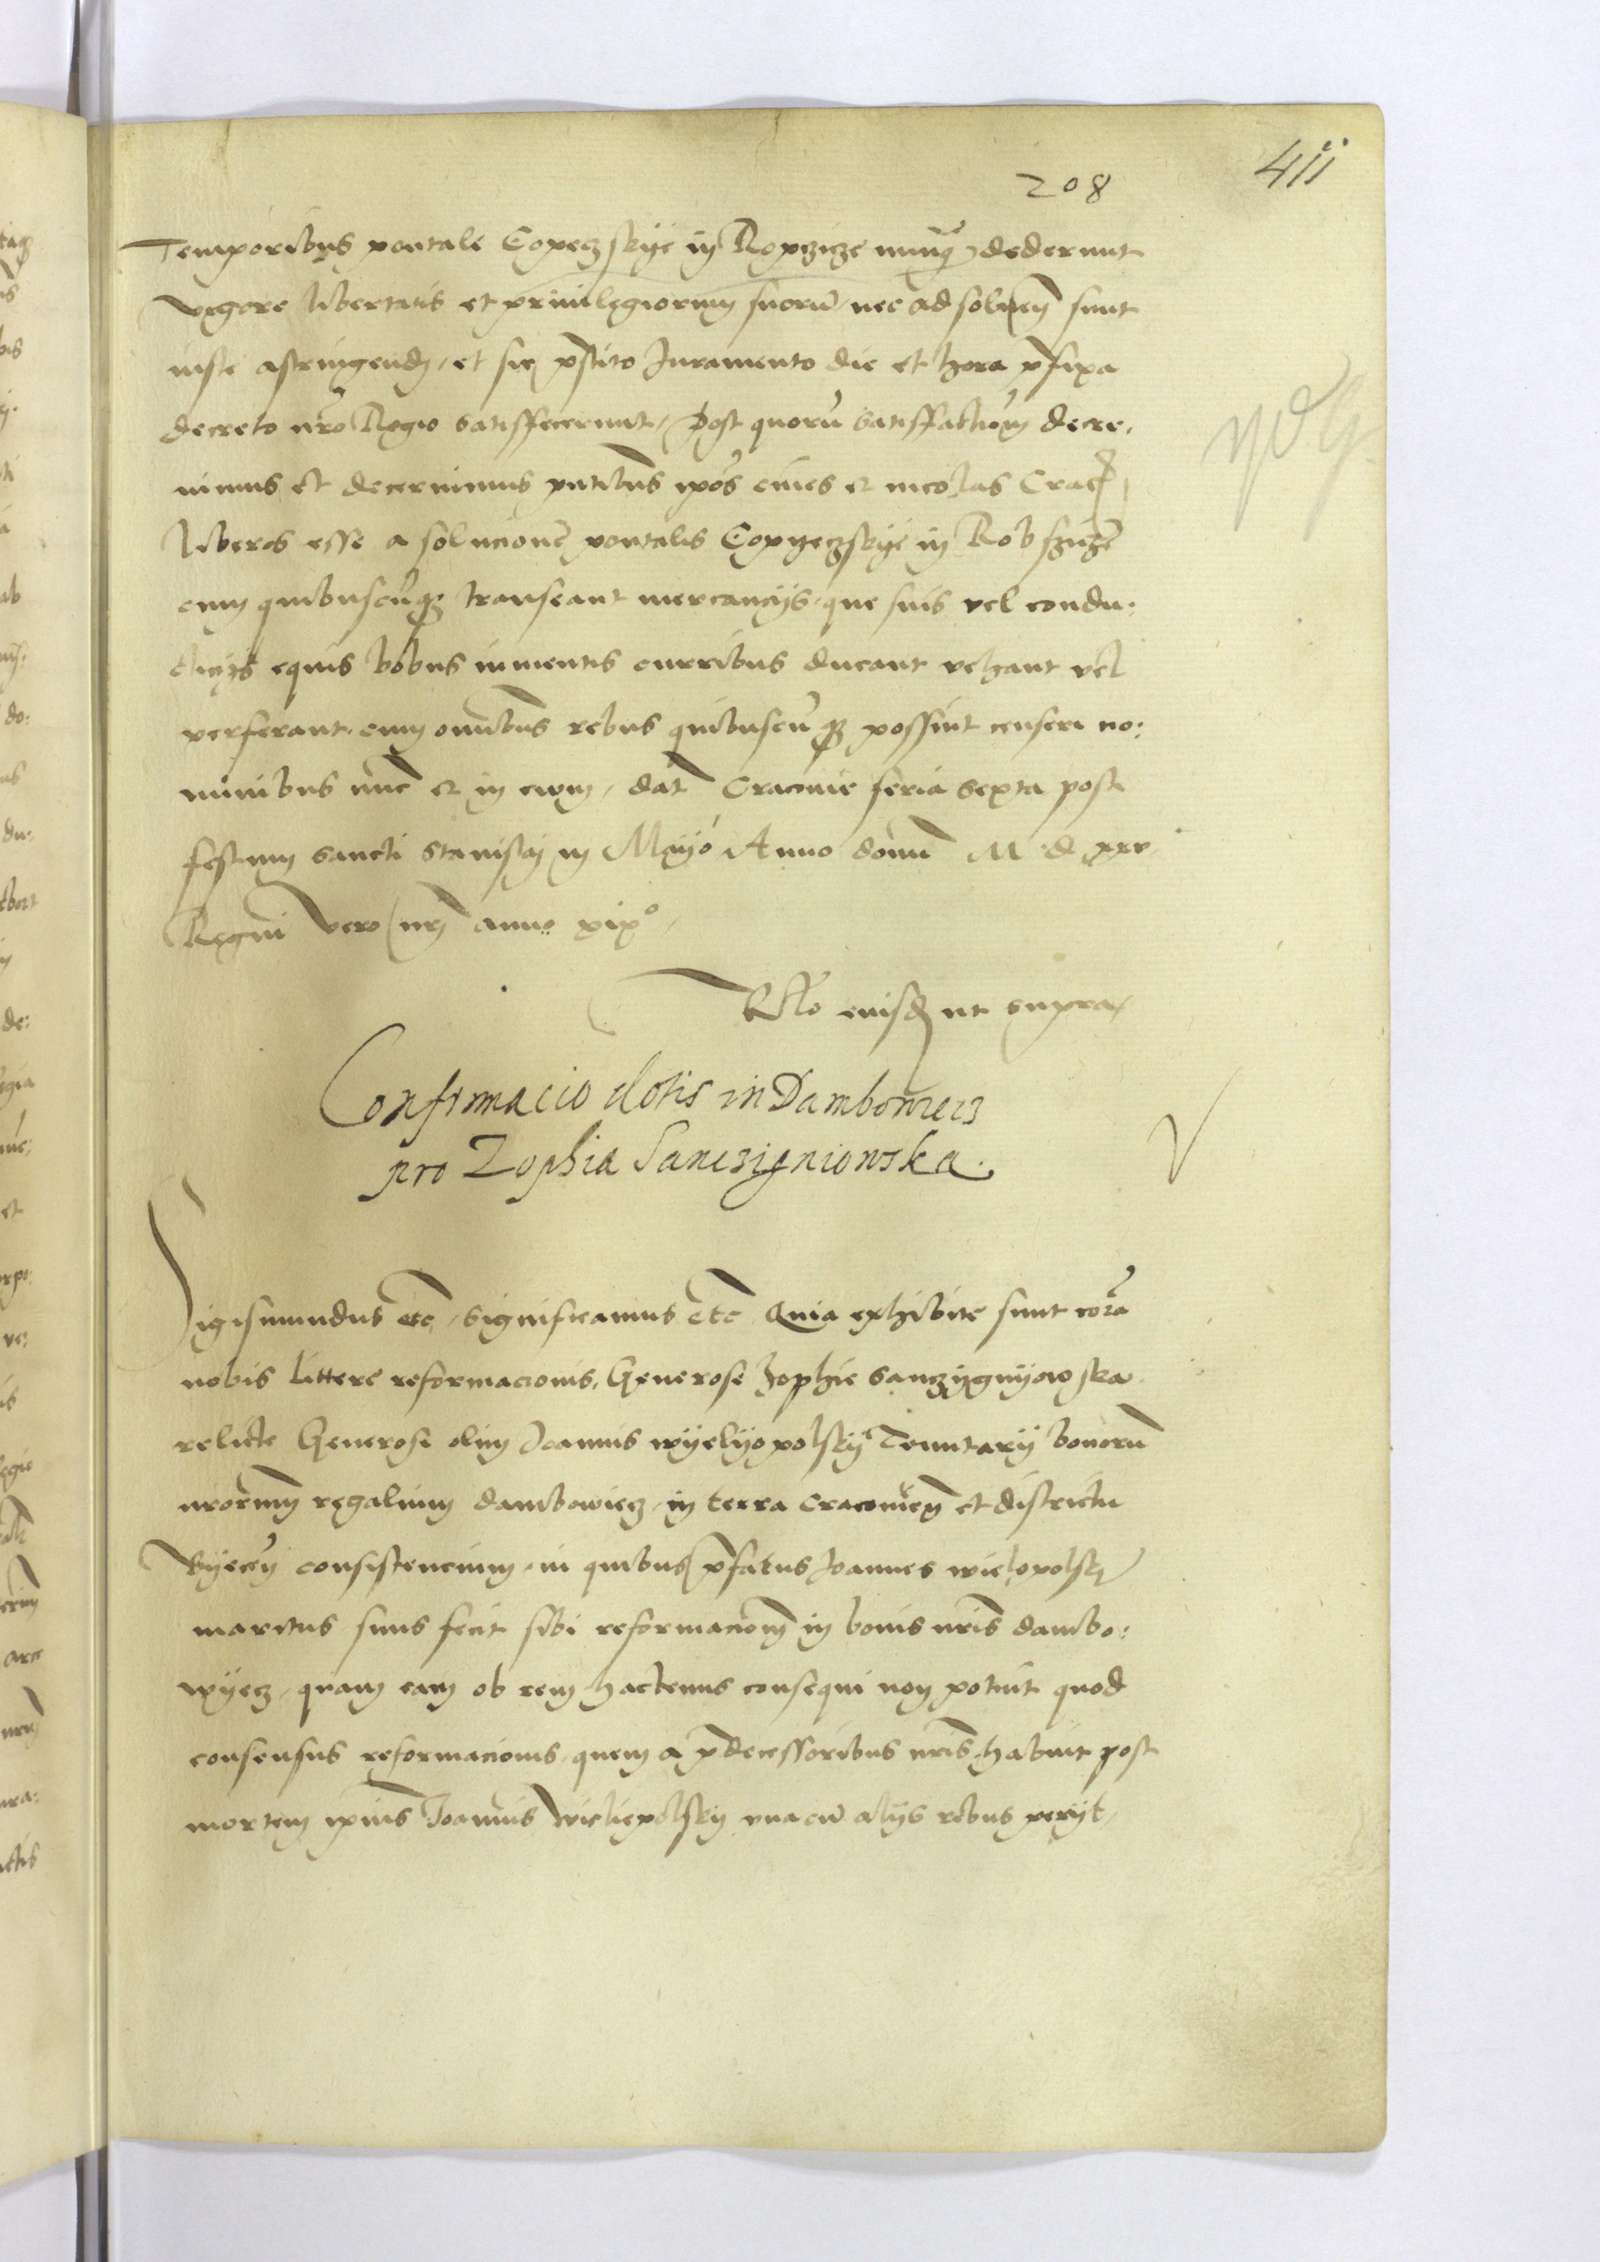 208
411
Temporibus pontale Copeczskye in Ropczicze nunq dederunt
vigore libertatis et privilegiorum suorū nec ad solven sunt
iuste astringendi, et sic pstito Juramento die et hora pfixa
decreto nro Regio satisfecerunt, Post quorū satisfactiom decre,
nimus et decernimus pntibus ipos cives et incolas Crac
liberos esse a solucione pontalis Copyeczskye in Robschicze
cum quibuscūq transeant mercancijs, que suis vel condu:
cticijs equis bobus iumentis curribus ducant vehant vel
perferant, cum omibus rebus quibuscūq possint censeri no:
minibus nunc et in evum, dat Cracovie feria sexta post
festum sancti Stanislai in Mayo Anno domi M d xxv
Regni vero nri anno xix°
Rlo eiusd ut supra
Confirmacio dotis in Dambowiecz
pro Zophia Sanczigniowska.
Sigismundus etc, significamus etc Quia exhibite sunt cora
nobis littere reformacionis, Generose Zophie Sanczygnyowska
relicte Generosi olim Joannis wyelyopolsky Tenutarij bonorū
nrorum regalium dambowiecz, in terra Cracovien et districtu
Byecen consistencium, in quibus pfatus Joannes wielopolsky
maritus suus fecit sibi reformacionem in bonis nris dambo:
wyecz, quam eam ob rem hactenus consequi non potuit quod
consensus reformacionis, quem a pdecessoribus nris habuit post
mortem ipius Joannis wieliopolsky una cū alijs rebus perijt,